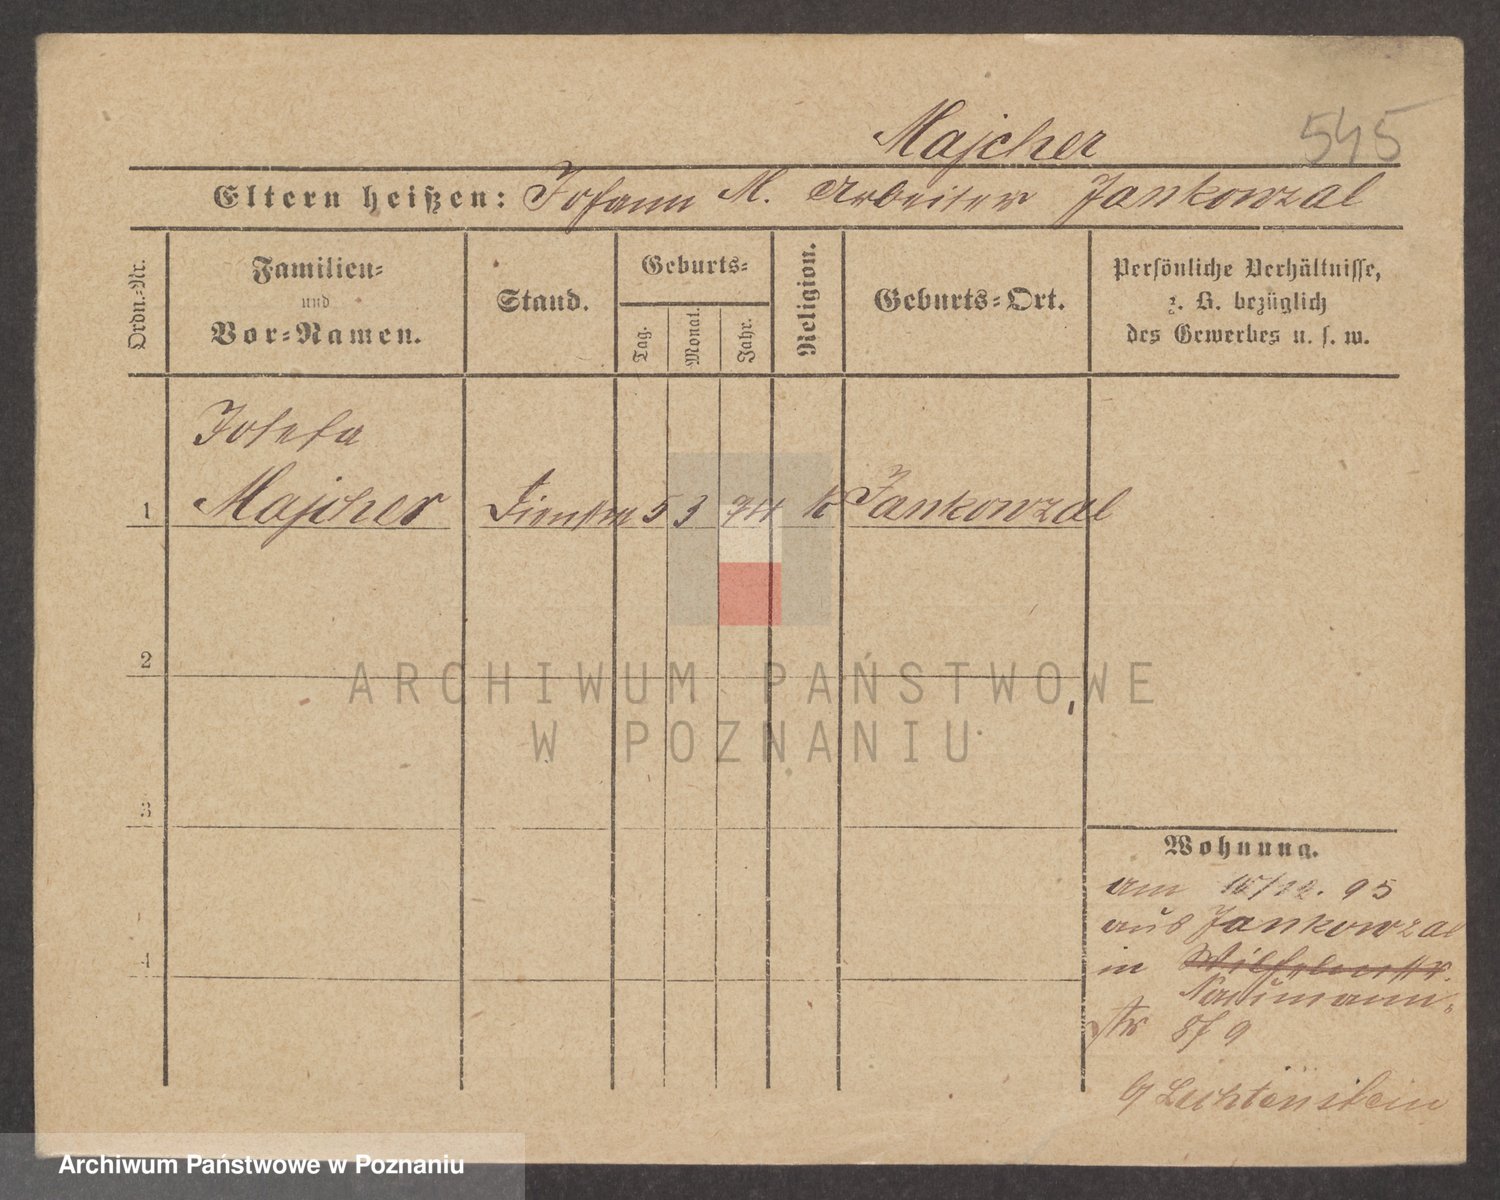 Majcher 545
Eltern heißen: Johann M. Arbeiter Jankowzal
Ordn.-Nr.
Familien-
und
Vor-Namen.
Stand.
Geburts-
Tag.
Monat.
Jahr.
Religion.
Geburts-Ort.
Persönliche Verhältnisse,
z. B. bezüglich
des Gewerbes u. s. w.
Josefa
1 Majcher 5 3 74 k Jankowzal
2
ARCHIWUM PAŃSTWOWE
W POZNANIU
3
4
Wohnung.
am 15/12. 95
aus Jankowzal
in
Naumann-
str 8f 9
b/ Lichtenstein
Archiwum Państwowe w Poznaniu